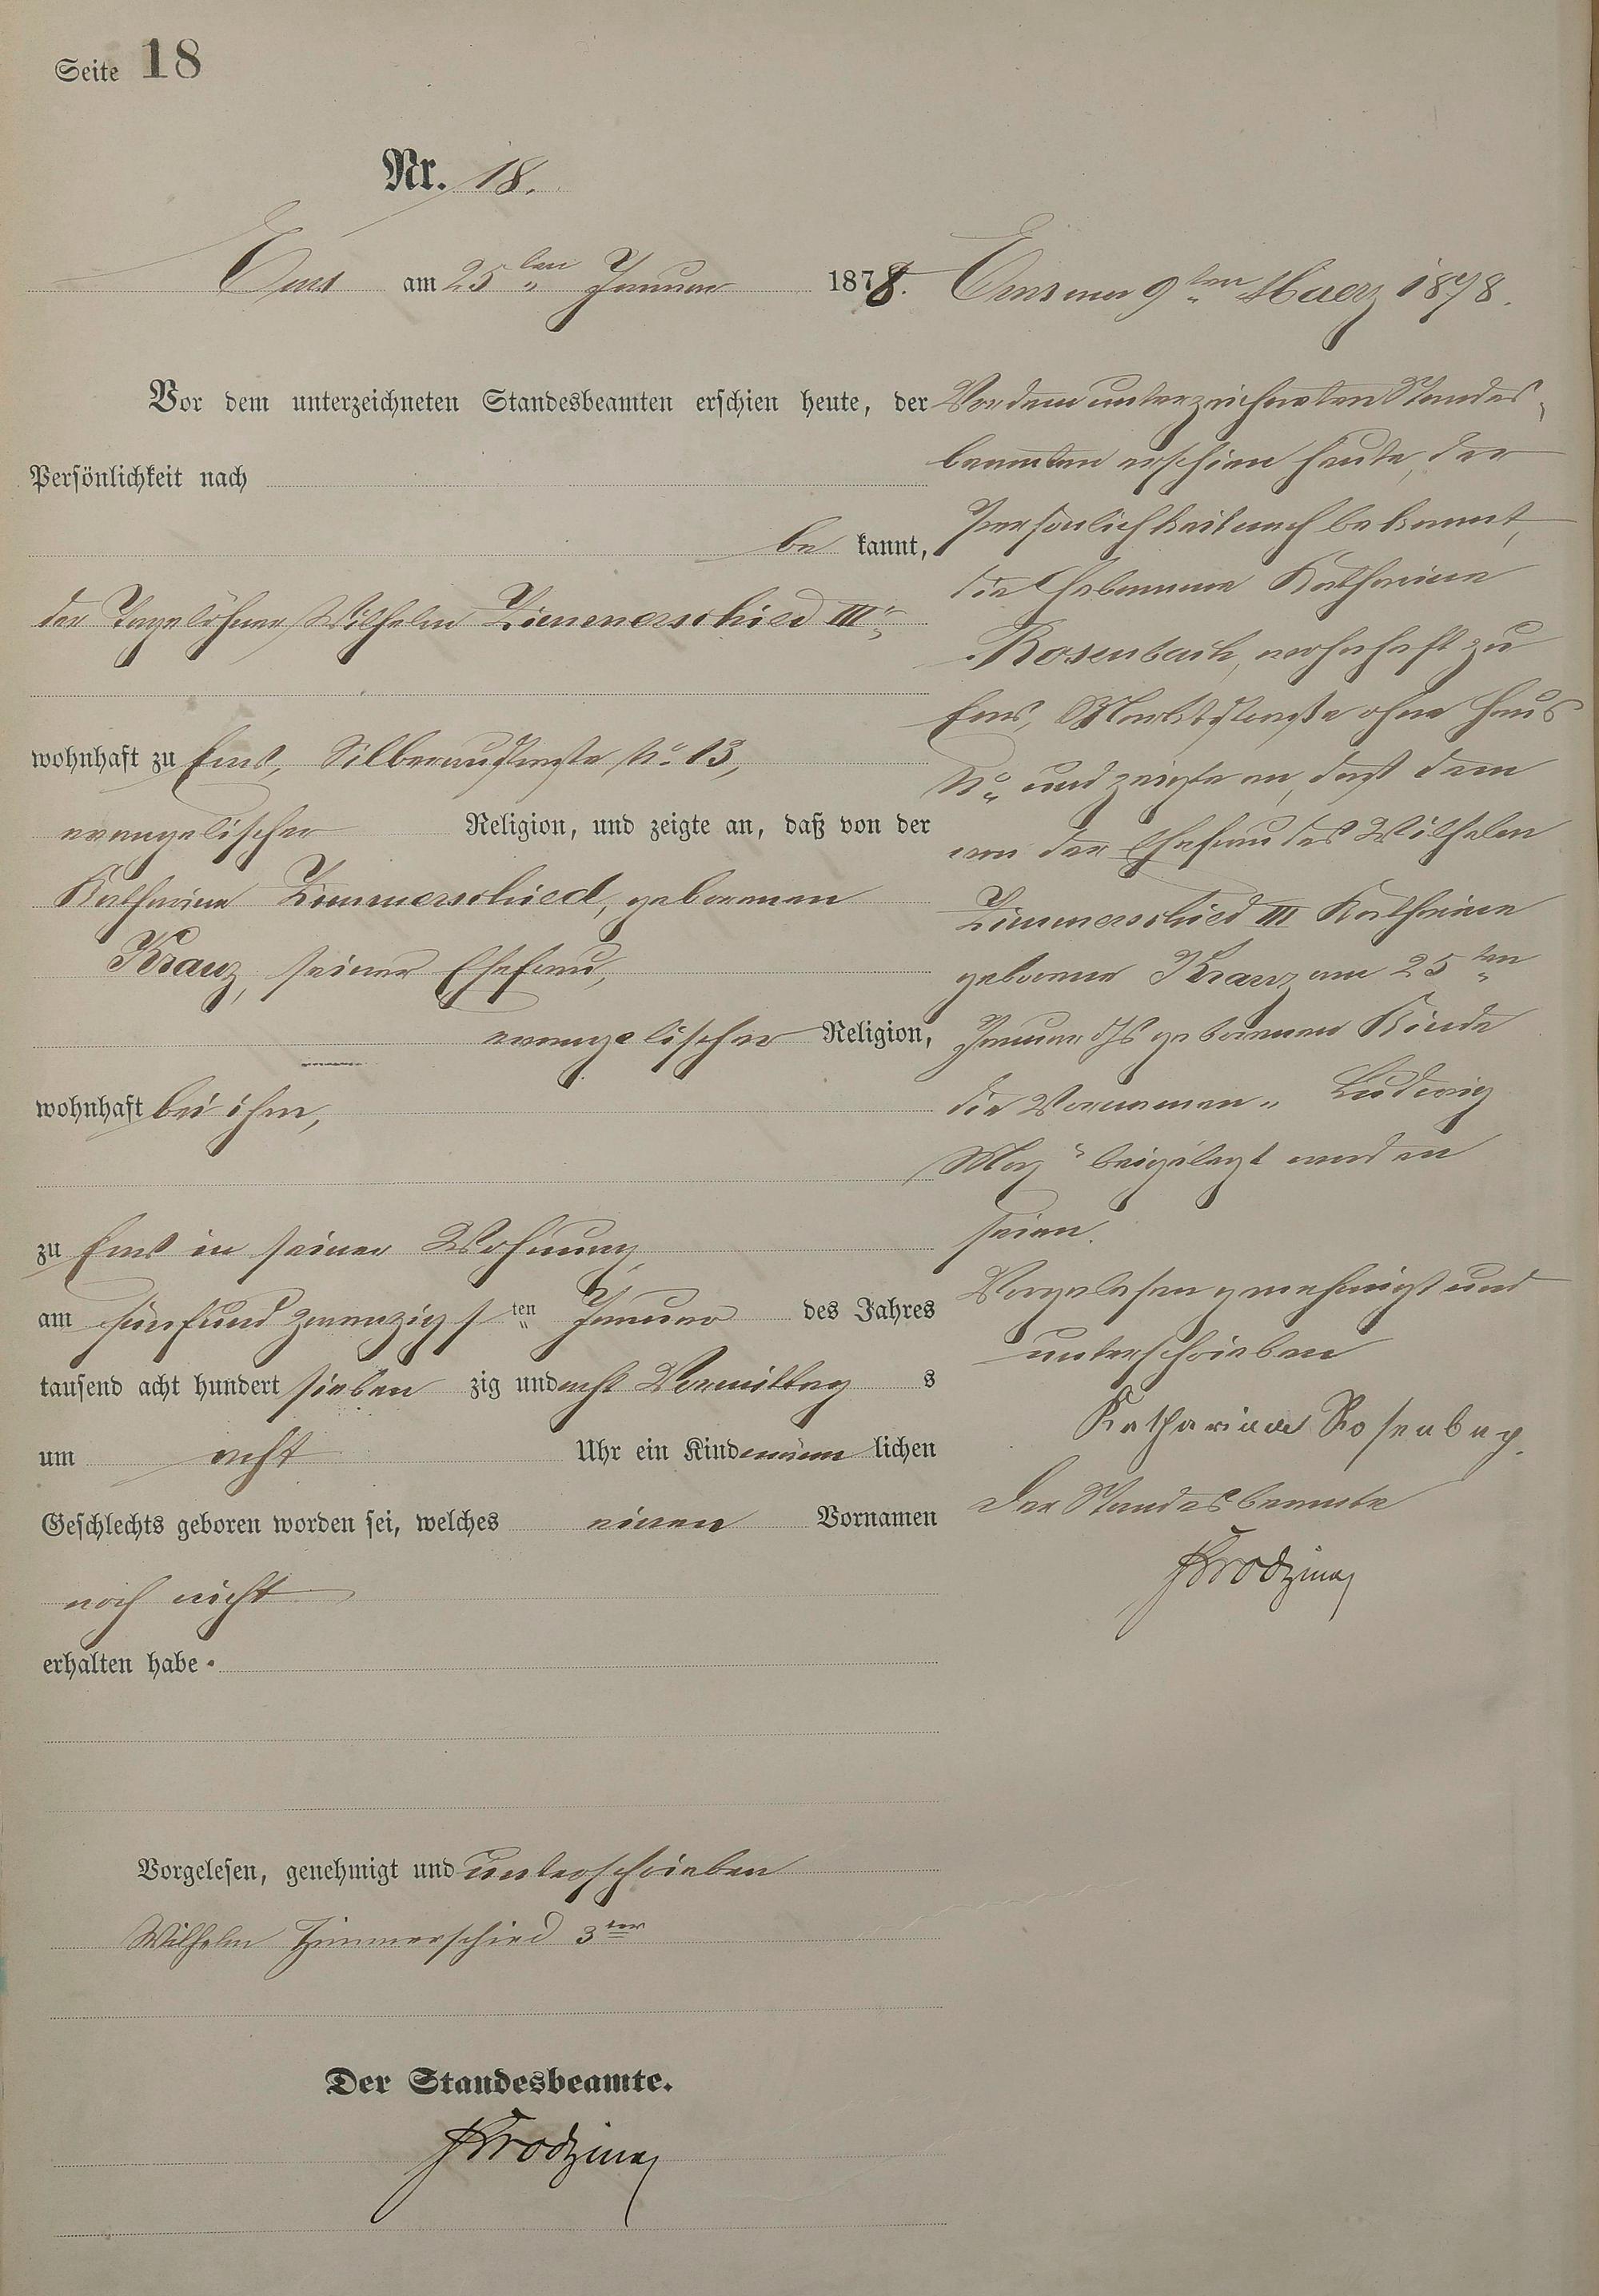 Seite 18
Nr. 18.
Ems am 25ten Januar 1878.
Vor dem unterzeichneten Standesbeamten erschien heute, der
Persönlichkeit nach
bekannt,
der Tagelöhner Wilhelm Zimmerschied III
wohnhaft zu Ems, Silberaustraße No. 13,
evangelischer Religion, und zeigte an, daß von der
Katharina Zimmerschied, geborenen
Kranz, seiner Ehefrau,
evangelischer Religion,
wohnhaft bei ihm,
zu Ems in seiner Wohnung
am fünfundzwanzigsten Januar des Jahres
tausend acht hundert siebenzig und acht Vormittags
um acht Uhr ein Kind männlichen
Geschlechts geboren worden sei, welches einen Vornamen
noch nicht
erhalten habe.
Vorgelesen, genehmigt und unterschrieben
Wilhelm Zimmerschied 3ter
Der Standesbeamte.
Ems am 9ten Maerz 1878.
Vor dem unterzeichneten Standes-
beamten erschien heute, der
Persönlichkeit nach bekannt,
die Hebamme Katharina
Rosenbach, wohnhaft zu
Ems, Marktstraße ohne Haus
No. und zeigte an, daß dem
von der Ehefrau des Wilhelm
Zimmerschied III Katharina
geborene Kranz am 25ten
Januar ds Js geborenen Kinde
die Vornamen „Ludwig
Max“ beigelegt worden
seien.
Vorgelesen genehmigt und
unterschrieben
Katharina Rosenbach.
Der Standesbeamte